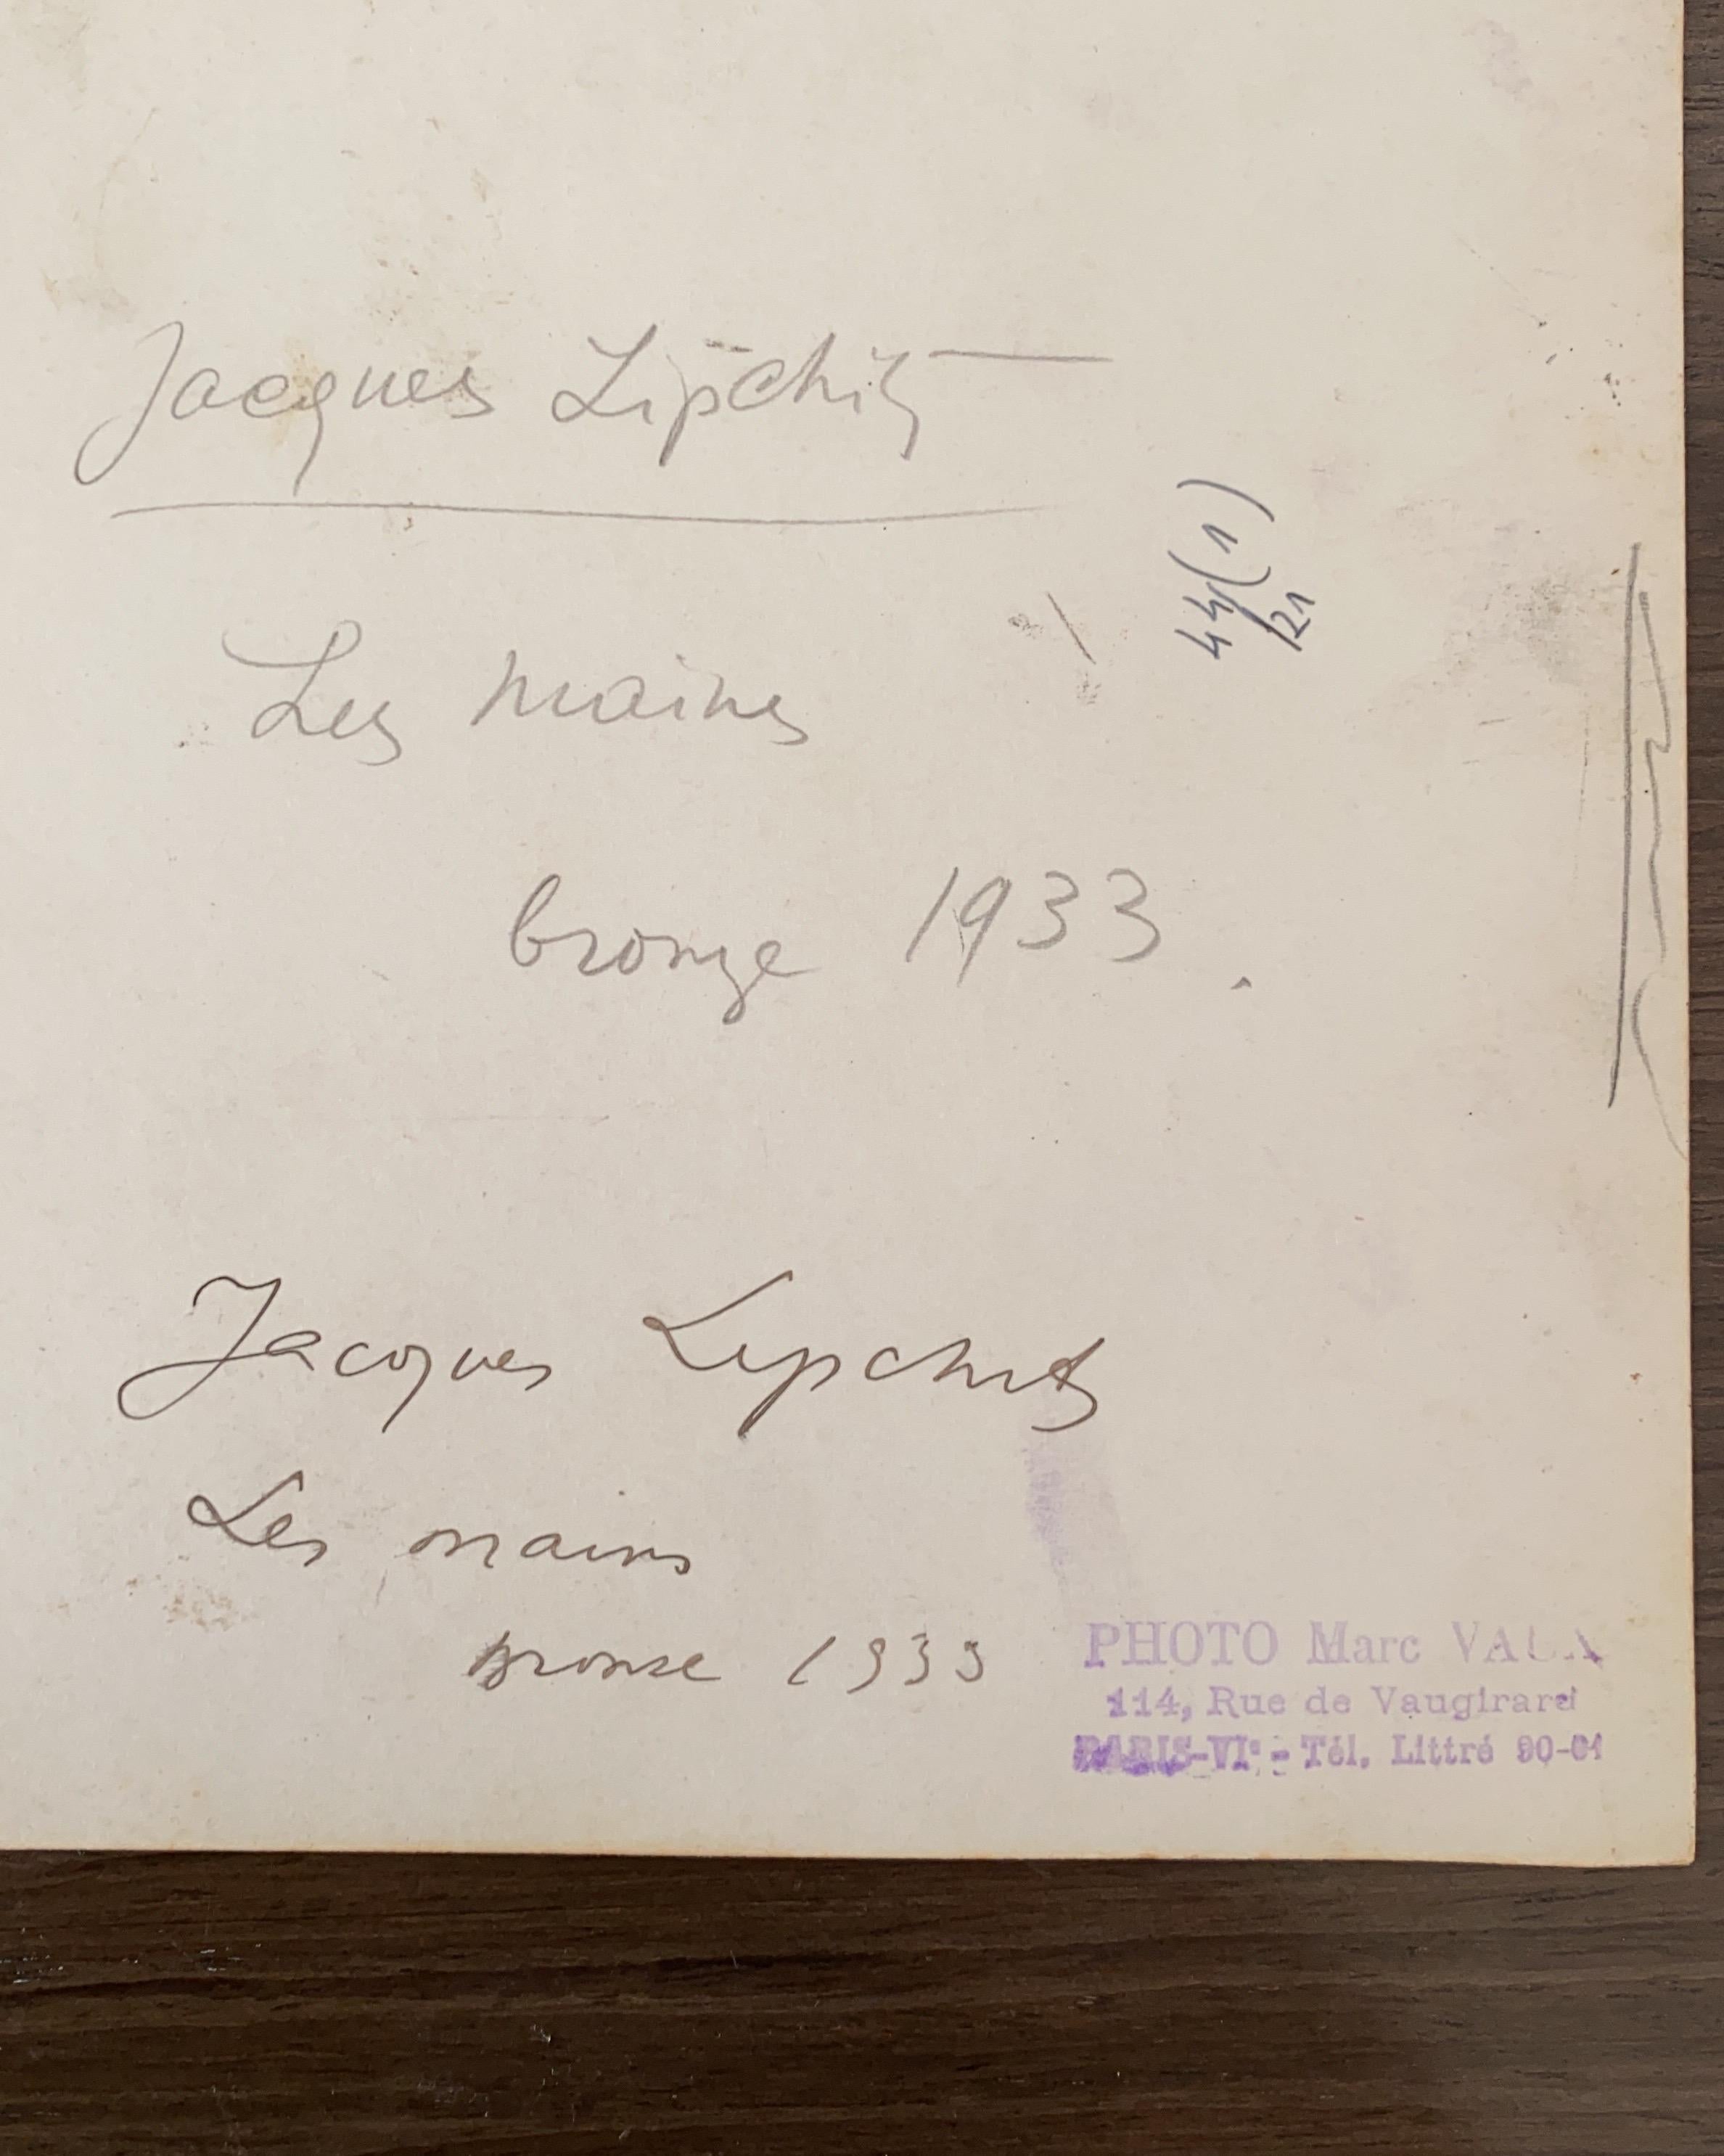 Jacques Lipchitz
44(1)
121
Les mains
bronze 1933.
Jacques Lipchitz
Les mains
bronze 1933
PHOTO Marc VAUX
114, Rue de Vaugirard
PARIS-VIe - Tél. Littré 90-01